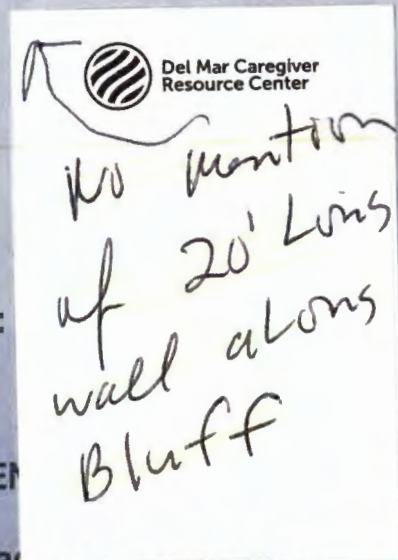 Del Mar Caregiver
Resource Center
No mention
of 20' Long
wall along
Bluff